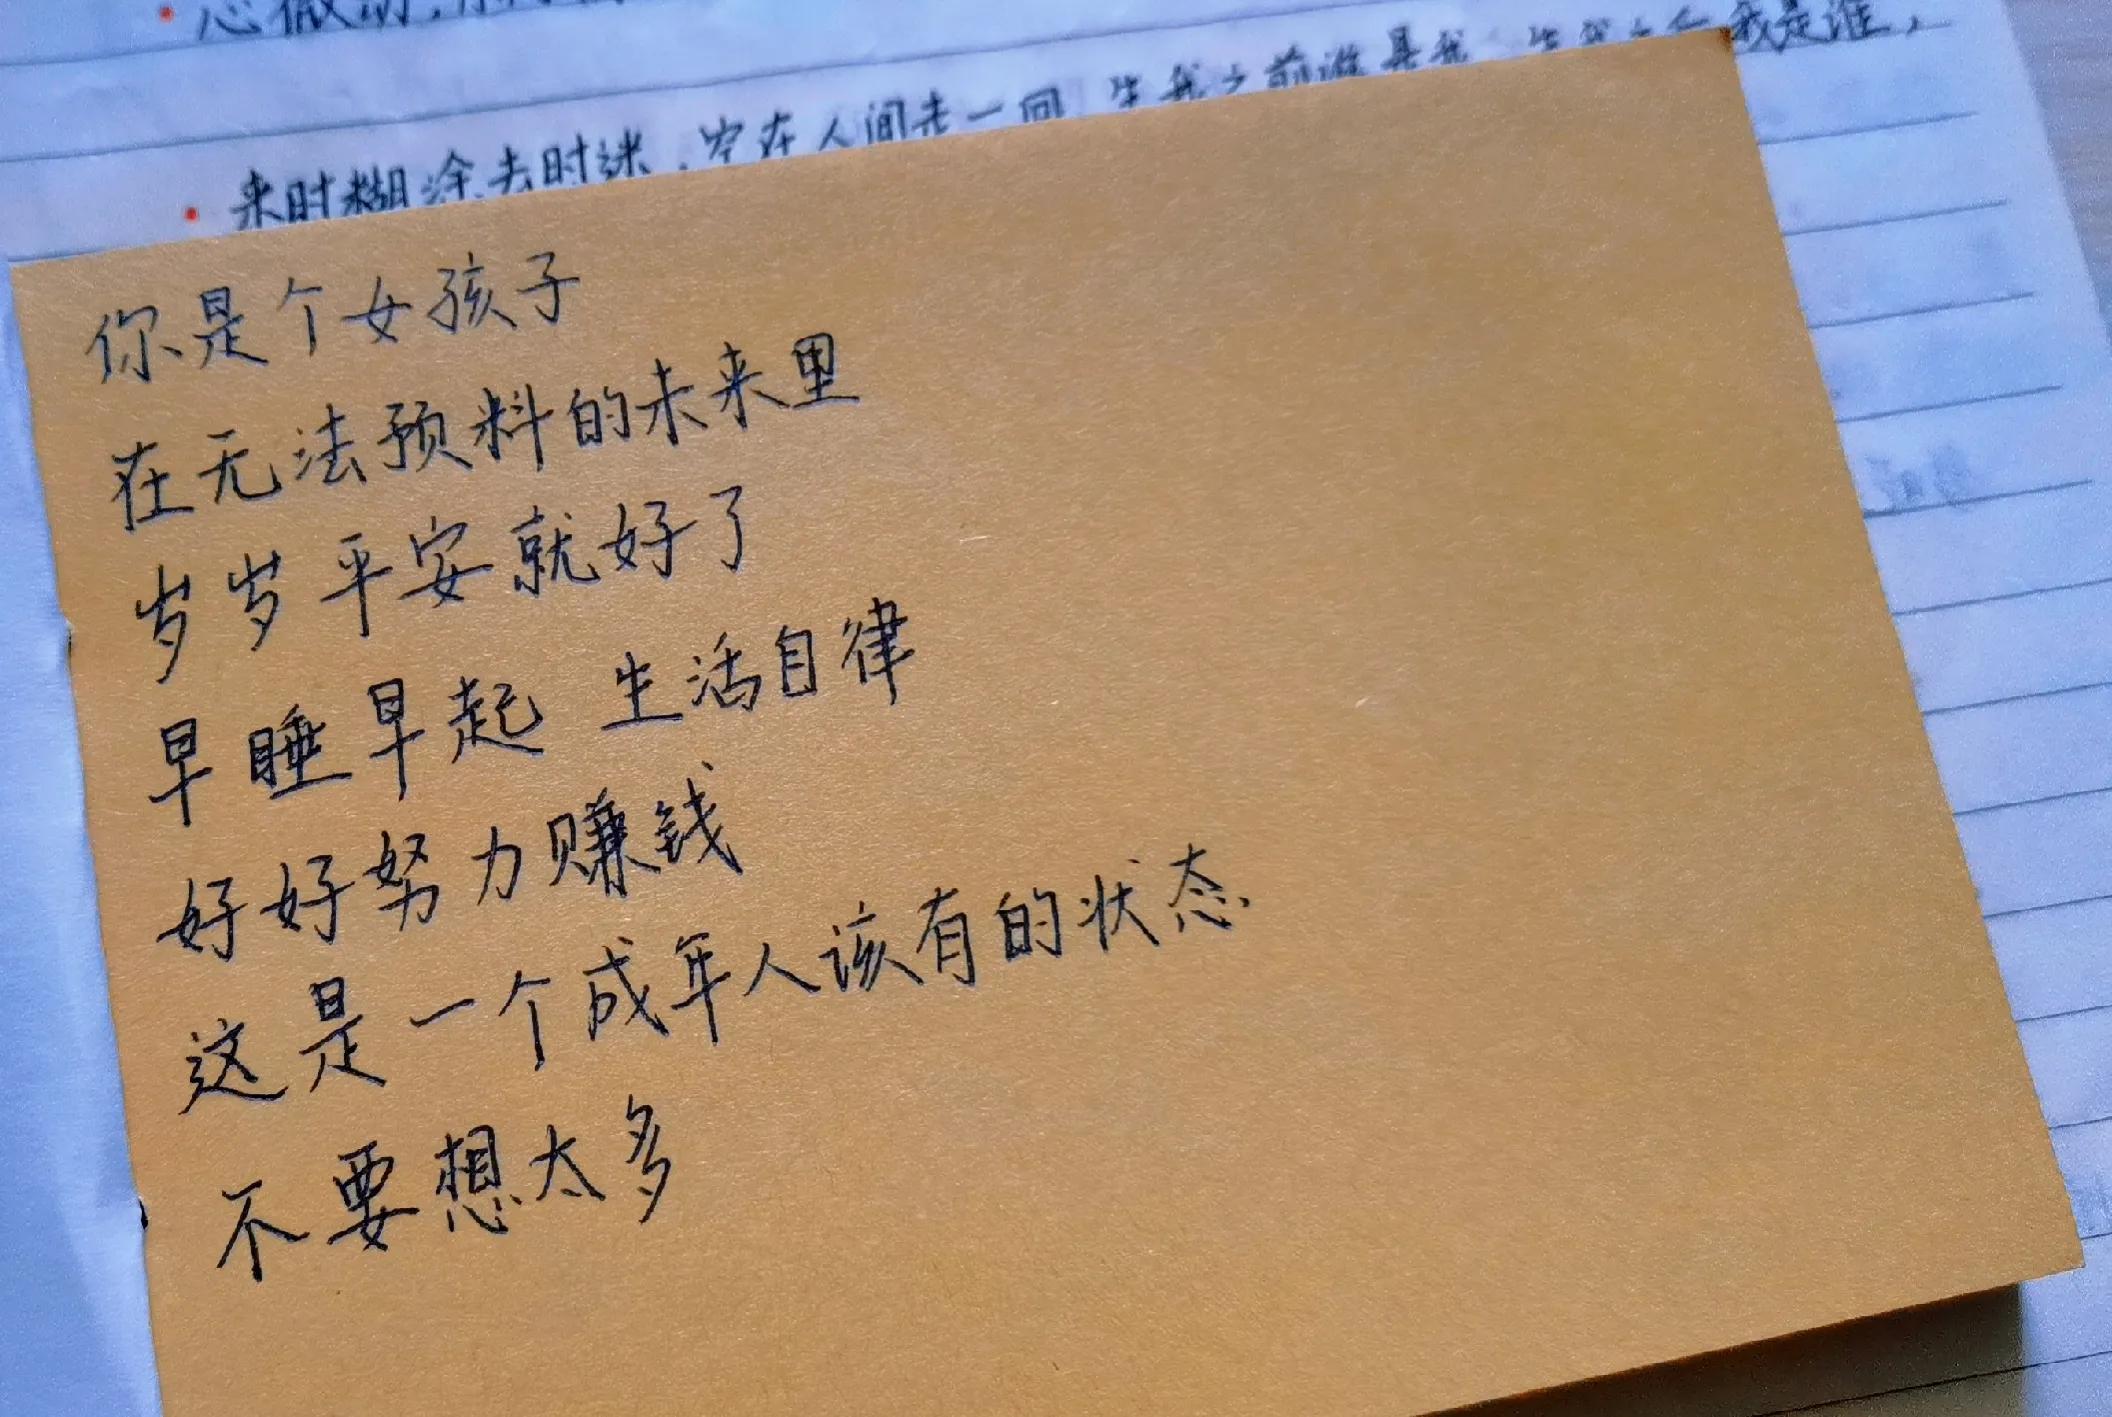 来时糊涂去时迷，空在人间走一回
我是谁，
你是个女孩子
在无法预料的未来里
岁岁平安就好了
早睡早起 生活自律
好好努力赚钱
这是一个成年人该有的状态
不要想太多